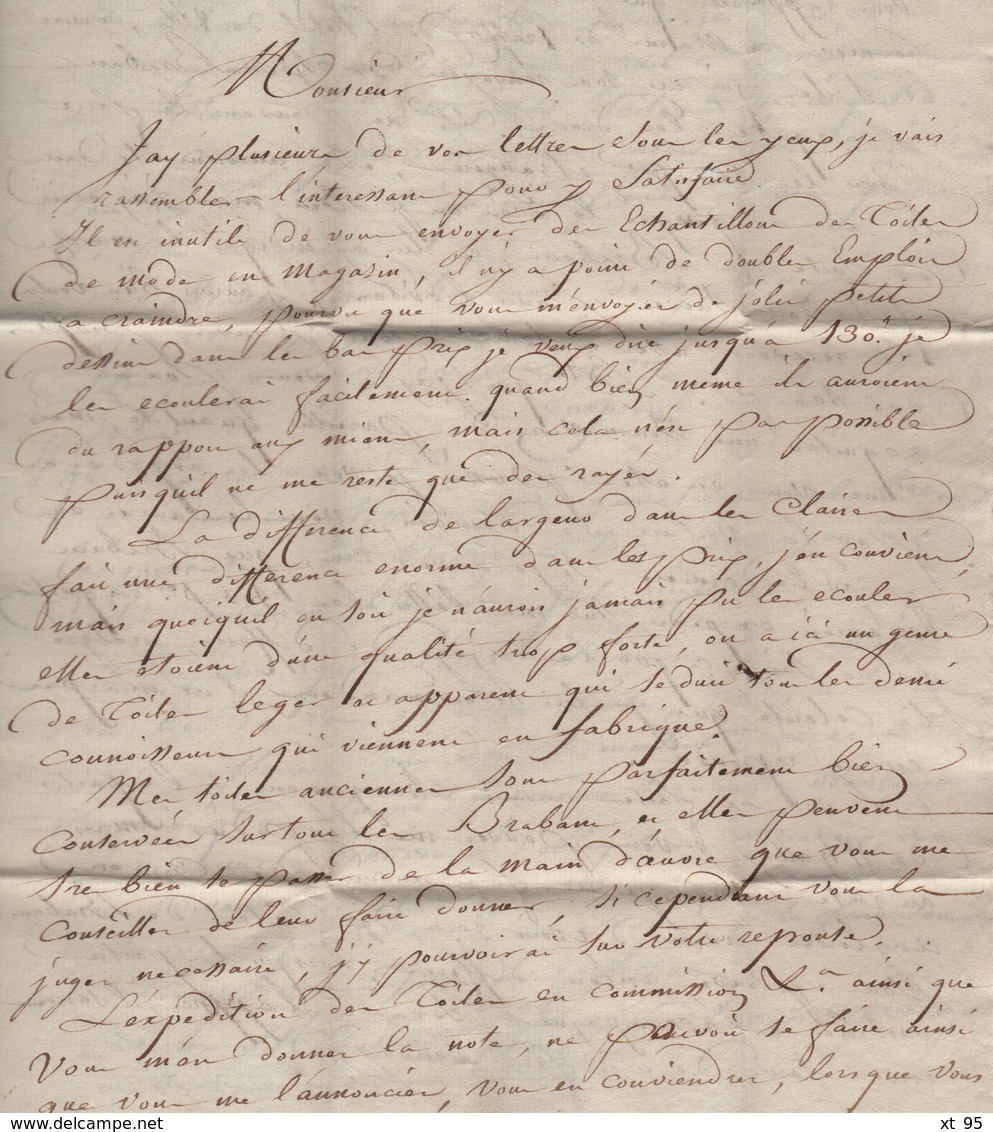 Monsieur
Jay plusieurs de vos lettres sous les yeux, je vais
rassembler l'interessant pour y satisfaire.
Il est inutile de vous envoyer des Echantillons des Toiles
de mode en magazin, il n'y a point de doubles Emplois
a craindre, pourvu que vous m'envoyiés de jolis petits
dessins dans les bas prix je veux dire jusqu'a 130.# je
les ecoulerai facilement. quand bien meme ils auroient
du rapport aux miens, mais cela n'est pas possible
puisquil ne me reste que des rayés.
La difference de largeur dans les Claires
fait une difference enorme dans les prix, j'en conviens,
mais quoiquil en soit je n'aurois jamais pu les ecouler
elles etoient d'une qualité trop forte, on a ici un genre
de Toiles leger et apparent qui seduit tous les demi
connoisseurs qui viennent en fabrique.
Mes toiles anciennes sont parfaitement bien
conservées surtout les Brabant, et elles peuvent
tres bien se passer de la main d'œuvre que vous me
conseillés de leur faire donner, si cependant vous la
jugés necessaire, j'y pourvoirai sur votre reponse.
L'expedition des Toiles en commission ainsi que
vous m'en donnes la note, ne pouvoit se faire ainsi
que vous me l'annonciés, vous en conviendres, lorsque vous
www.delcampe.net
xt 95